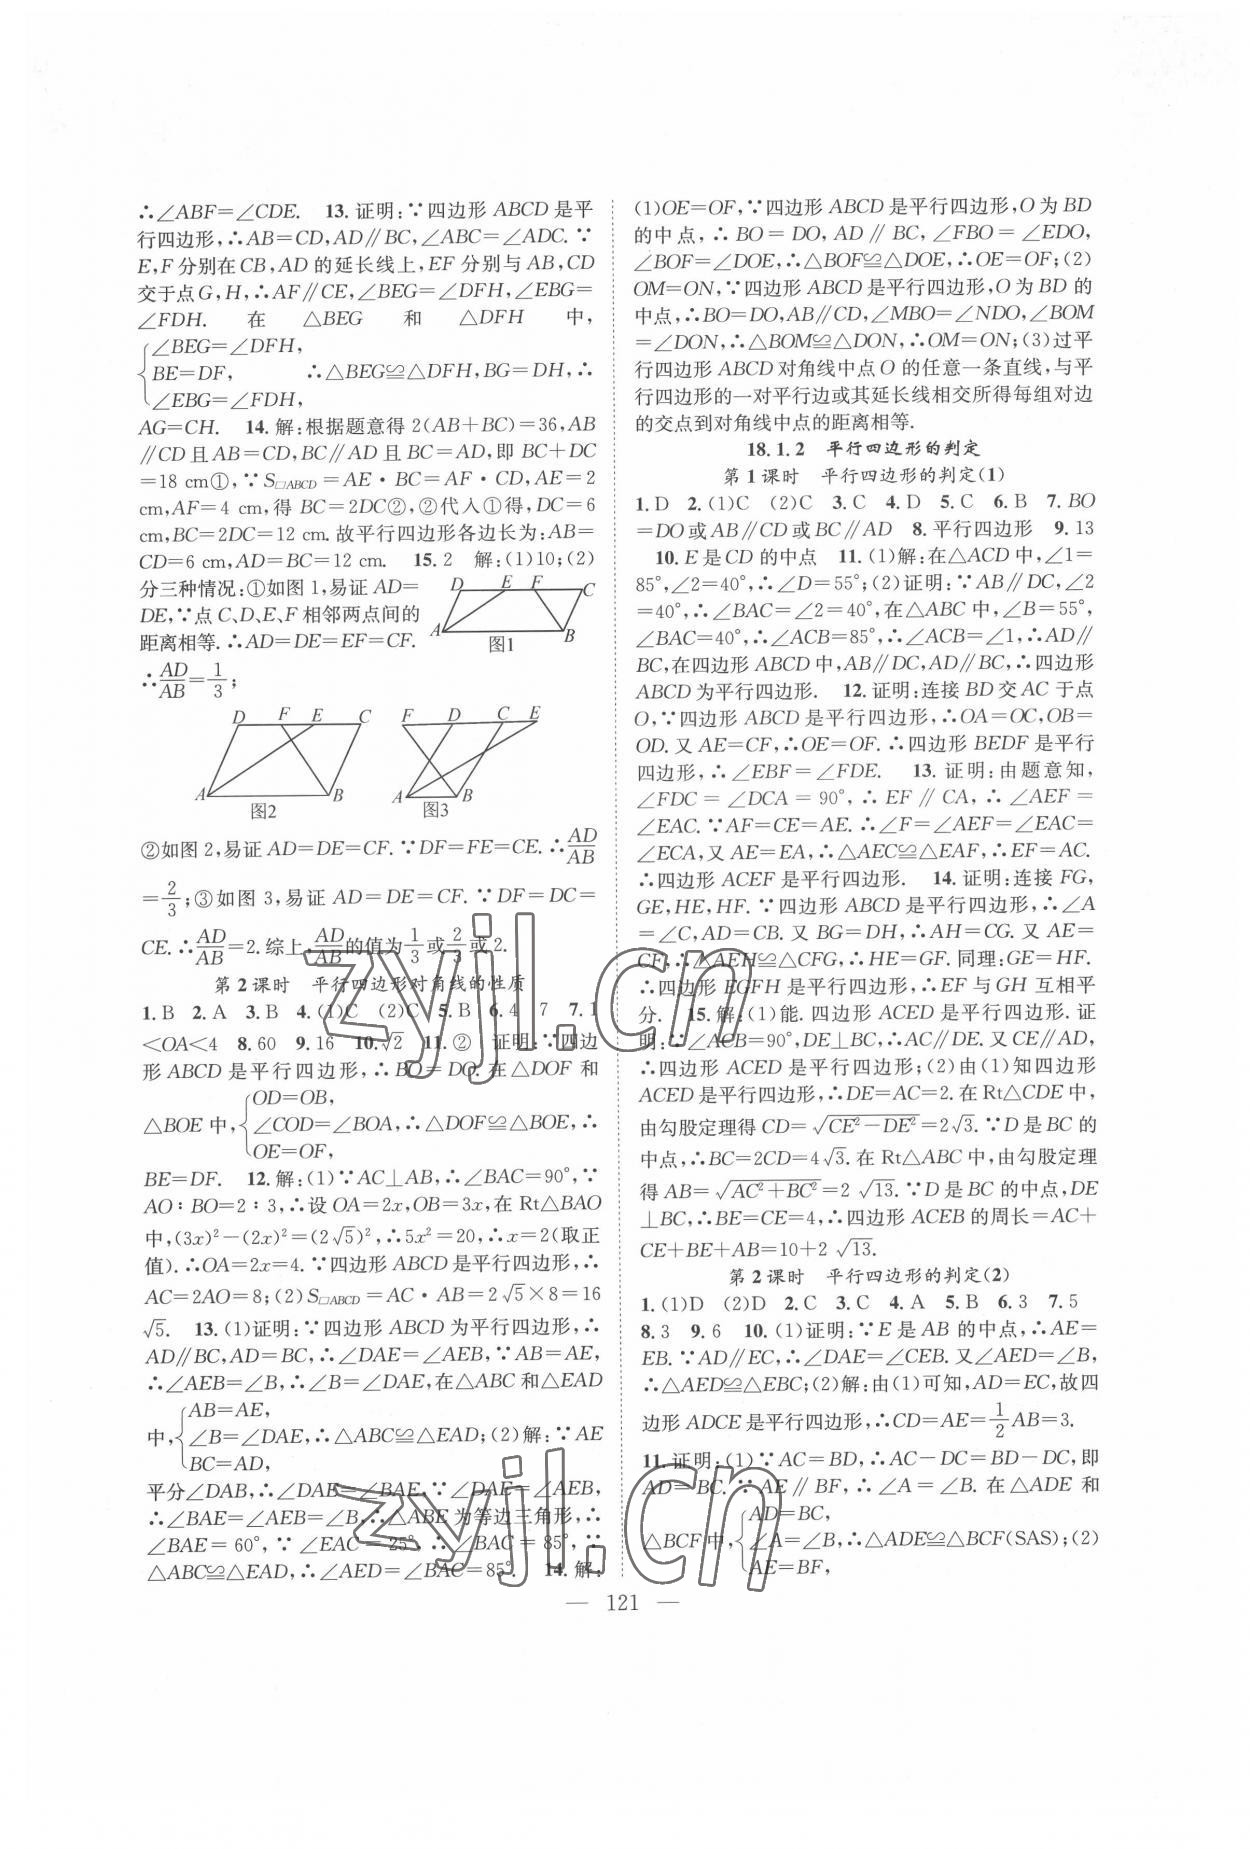 ∴∠ABF=∠CDE. 13.证明:∵四边形 ABCD 是平
行四边形,∴AB=CD,AD∥BC,∠ABC=∠ADC.∵
E,F 分别在 CB,AD 的延长线上,EF 分别与 AB,CD
交于点 G,H,∴AF∥CE,∠BEG=∠DFH,∠EBG=
∠FDH. 在 △BEG 和 △DFH 中,
∠BEG=∠DFH,
BE=DF, ∴△BEG≌△DFH,BG=DH,∴
∠EBG=∠FDH,
AG=CH. 14.解:根据题意得 2(AB+BC)=36,AB
∥CD 且 AB=CD,BC∥AD 且 BC=AD,即 BC+DC
=18 cm①,∵S□ABCD=AE·BC=AF·CD,AE=2
cm,AF=4 cm,得 BC=2DC②,②代入①得,DC=6
cm,BC=2DC=12 cm.故平行四边形各边长为:AB=
CD=6 cm,AD=BC=12 cm. 15.2 解:(1)10;(2)
分三种情况:①如图 1,易证 AD=
DE,∵点 C、D、E、F 相邻两点间的
距离相等.∴AD=DE=EF=CF.
D E F C
A B
图1
∴AD/AB=1/3;
D F E C
A B
图2
F D C E
A B
图3
②如图 2,易证 AD=DE=CF.∵DF=FE=CE.∴AD/AB
=2/3;③如图 3,易证 AD=DE=CF.∵DF=DC=
CE.∴AD/AB=2.综上,AD/AB的值为1/3或2/3或 2.
第 2 课时 平行四边形对角线的性质
1.B 2.A 3.B 4.(1)C (2)C 5.B 6.4 7 7.1
<OA<4 8.60 9.16 10.√2 11.② 证明:∵四边
形 ABCD 是平行四边形,∴BO=DO.在△DOF 和
OD=OB,
△BOE 中,∠COD=∠BOA,∴△DOF≌△BOE,∴
OE=OF,
BE=DF. 12.解:(1)∵AC⊥AB,∴∠BAC=90°,∵
AO∶BO=2∶3,∴设 OA=2x,OB=3x,在 Rt△BAO
中,(3x)²-(2x)²=(2√5)²,∴5x²=20,∴x=2(取正
值).∴OA=2x=4.∵四边形 ABCD 是平行四边形,∴
AC=2AO=8;(2)S□ABCD=AC·AB=2√5×8=16
√5. 13.(1)证明:∵四边形 ABCD 为平行四边形,∴
AD∥BC,AD=BC,∴∠DAE=∠AEB,∵AB=AE,
∴∠AEB=∠B,∴∠B=∠DAE,在△ABC 和△EAD
AB=AE,
中,∠B=∠DAE,∴△ABC≌△EAD;(2)解:∵AE
BC=AD,
平分∠DAB,∴∠DAE=∠BAE.∵∠DAE=∠AEB,
∴∠BAE=∠AEB=∠B,∴△ABE 为等边三角形,∴
∠BAE=60°,∵∠EAC=25°,∴∠BAC=85°,∵
△ABC≌△EAD,∴∠AED=∠BAC=85°. 14.解:
(1)OE=OF,∵四边形 ABCD 是平行四边形,O 为 BD
的中点,∴BO=DO,AD∥BC,∠FBO=∠EDO,
∠BOF=∠DOE,∴△BOF≌△DOE,∴OE=OF;(2)
OM=ON,∵四边形 ABCD 是平行四边形,O 为 BD 的
中点,∴BO=DO,AB∥CD,∠MBO=∠NDO,∠BOM
=∠DON,∴△BOM≌△DON,∴OM=ON;(3)过平
行四边形 ABCD 对角线中点 O 的任意一条直线,与平
行四边形的一对平行边或其延长线相交所得每组对边
的交点到对角线中点的距离相等.
18.1.2 平行四边形的判定
第 1 课时 平行四边形的判定(1)
1.D 2.(1)C (2)C 3.C 4.D 5.C 6.B 7.BO
=DO或 AB∥CD或 BC∥AD 8.平行四边形 9.13
10.E 是 CD 的中点 11.(1)解:在△ACD 中,∠1=
85°,∠2=40°,∴∠D=55°;(2)证明:∵AB∥DC,∠2
=40°,∴∠BAC=∠2=40°,在△ABC 中,∠B=55°,
∠BAC=40°,∴∠ACB=85°,∴∠ACB=∠1,∴AD∥
BC,在四边形 ABCD 中,AB∥DC,AD∥BC,∴四边形
ABCD 为平行四边形. 12.证明:连接 BD 交 AC 于点
O,∵四边形 ABCD 是平行四边形,∴OA=OC,OB=
OD.又 AE=CF,∴OE=OF.∴四边形 BEDF 是平行
四边形,∴∠EBF=∠FDE. 13.证明:由题意知,
∠FDC=∠DCA=90°,∴EF∥CA,∴∠AEF=
∠EAC.∵AF=CE=AE.∴∠F=∠AEF=∠EAC=
∠ECA,又 AE=EA,∴△AEC≌△EAF,∴EF=AC.
∴四边形 ACEF 是平行四边形. 14.证明:连接 FG,
GE,HE,HF.∵四边形 ABCD 是平行四边形,∴∠A
=∠C,AD=CB.又 BG=DH,∴AH=CG.又 AE=
CF,∴△AEH≌△CFG,∴HE=GF.同理:GE=HF.
∴四边形 EGFH 是平行四边形,∴EF 与 GH 互相平
分. 15.解:(1)能.四边形 ACED 是平行四边形.证
明:∵∠ACB=90°,DE⊥BC,∴AC∥DE.又 CE∥AD,
∴四边形 ACED 是平行四边形;(2)由(1)知四边形
ACED 是平行四边形,∴DE=AC=2.在 Rt△CDE 中,
由勾股定理得 CD=√(CE²-DE²)=2√3.∵D 是 BC 的
中点,∴BC=2CD=4√3.在 Rt△ABC 中,由勾股定理
得 AB=√(AC²+BC²)=2√13.∵D 是 BC 的中点,DE
⊥BC,∴BE=CE=4,∴四边形 ACEB 的周长=AC+
CE+BE+AB=10+2√13.
第 2 课时 平行四边形的判定(2)
1.(1)D (2)D 2.C 3.C 4.A 5.B 6.3 7.5
8.3 9.6 10.(1)证明:∵E 是 AB 的中点,∴AE=
EB.∵AD∥EC,∴∠DAE=∠CEB.又∠AED=∠B,
∴△AED≌△EBC;(2)解:由(1)可知,AD=EC,故四
边形 ADCE 是平行四边形,∴CD=AE=1/2AB=3.
11.证明:(1)∵AC=BD,∴AC-DC=BD-DC,即
AD=BC.∵AE∥BF,∴∠A=∠B.在△ADE 和
AD=BC,
△BCF 中,∠A=∠B,∴△ADE≌△BCF(SAS);(2)
AE=BF,
— 121 —
zyjl.cn
zyjl.cn